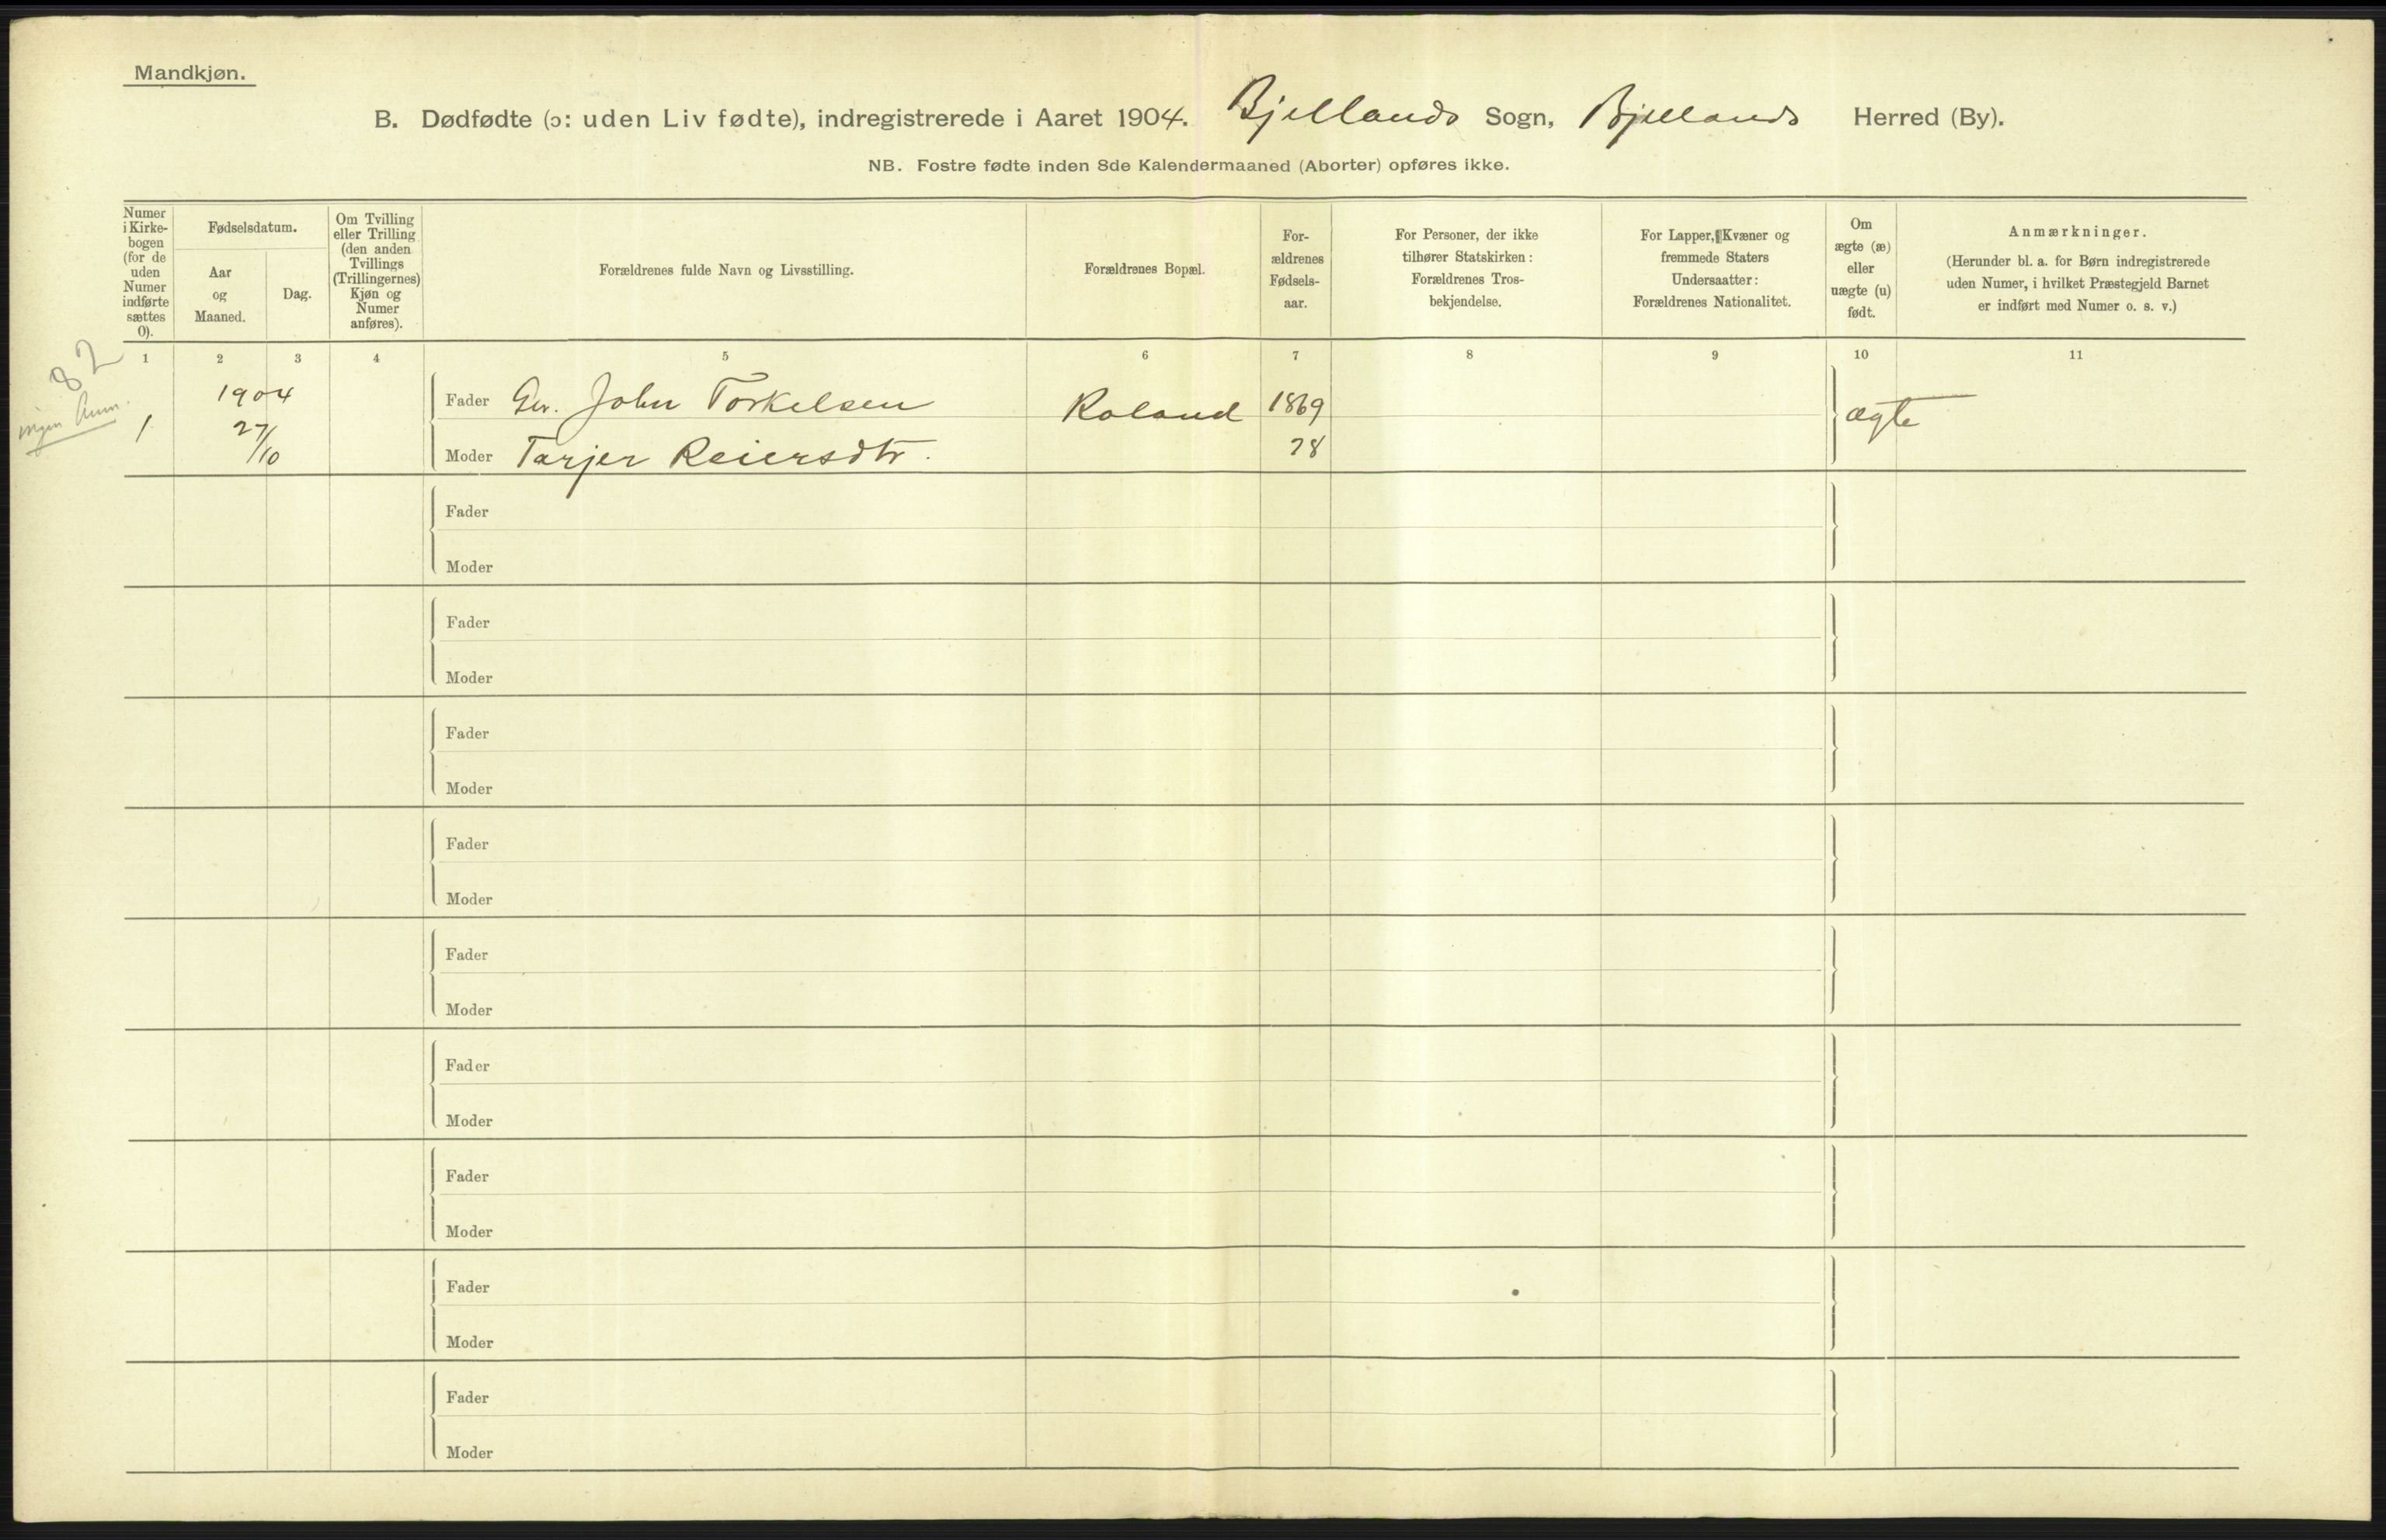 Mandkjøn.
B. Dødfødte (ɔ: uden Liv fødte), indregistrerede i Aaret 1904. Bjellands Sogn, Bjellands Herred (By).
NB. Fostre fødte inden 8de Kalendermaaned (Aborter) opføres ikke.
Numer
i Kirke-
bogen
(for de
uden
Numer
indførte
sættes
0).
Fødselsdatum.
Aar
og
Maaned.
Dag.
Om Tvilling
eller Trilling
(den anden
Tvillings
(Trillingernes)
Kjøn og
Numer
anføres).
Forældrenes fulde Navn og Livsstilling.
Forældrenes Bopæl.
For-
ældrenes
Fødsels-
aar.
For Personer, der ikke
tilhører Statskirken:
Forældrenes Tros-
bekjendelse.
For Lapper, Kvæner og
fremmede Staters
Undersaatter:
Forældrenes Nationalitet.
Om
ægte (æ)
eller
uægte (u)
født.
Anmærkninger.
(Herunder bl. a. for Børn indregistrerede
uden Numer, i hvilket Præstegjeld Barnet
er indført med Numer o. s. v.)
1 2 3 4 5 6 7 8 9 10 11
82
ingen Anm.
1904
Fader Gr. John Torkelsen Roland 1869 ægte
1 27/10
Moder Tarjer Reiersdtr. 78
Fader
Moder
Fader
Moder
Fader
Moder
Fader
Moder
Fader
Moder
Fader
Moder
Fader
Moder
Fader
Moder
Fader
Moder